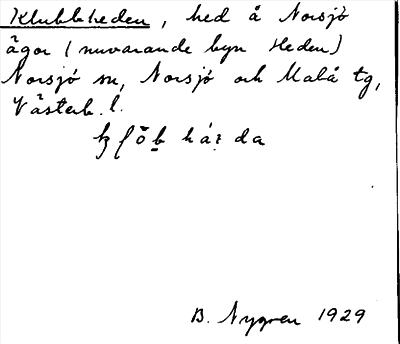 Klubbheden, hed å Norsjö
ägor (nuvarande byn Heden)
Norsjö sn, Norsjö och Malå tg,
Västerb. l.
B. Nygren 1929